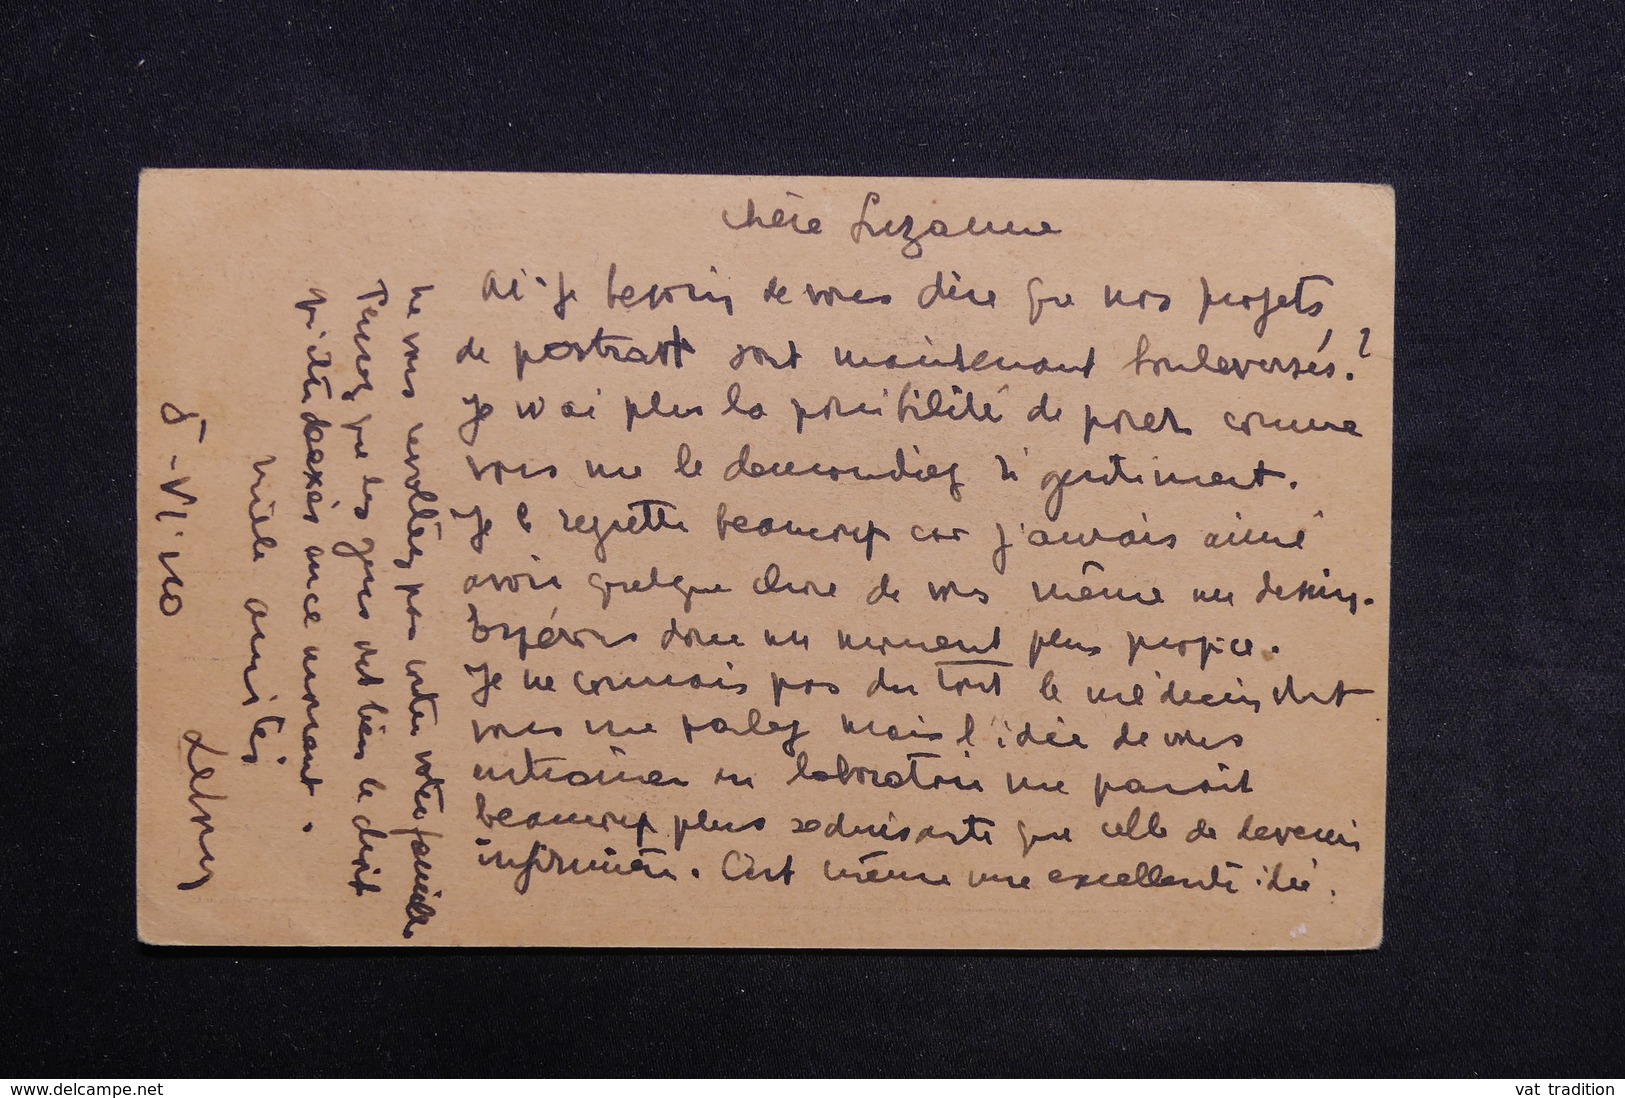 chère Suzanne
Ai-je besoin de vous dire que nos projets
de portrait sont maintenant bouleversés?
Je n'ai plus la possibilité de poser comme
vous me le demandiez si gentiment.
Je le regrette beaucoup car j'aurais aimé
avoir quelque chose de vous même un dessin.
Espérons donc un moment plus propice.
Je ne connais pas du tout le médecin dont
vous me parlez mais l'idée de vous
entraîner en laboratoire me paraît
beaucoup plus séduisante que celle de devenir
infirmière. C'est même une excellente idée.
Ne vous révoltez pas contre votre famille
Pensez que les gens ont bien le droit
d'être en ce moment.
mille amitiés
5-VI-40
www.delcampe.net
vat tradition